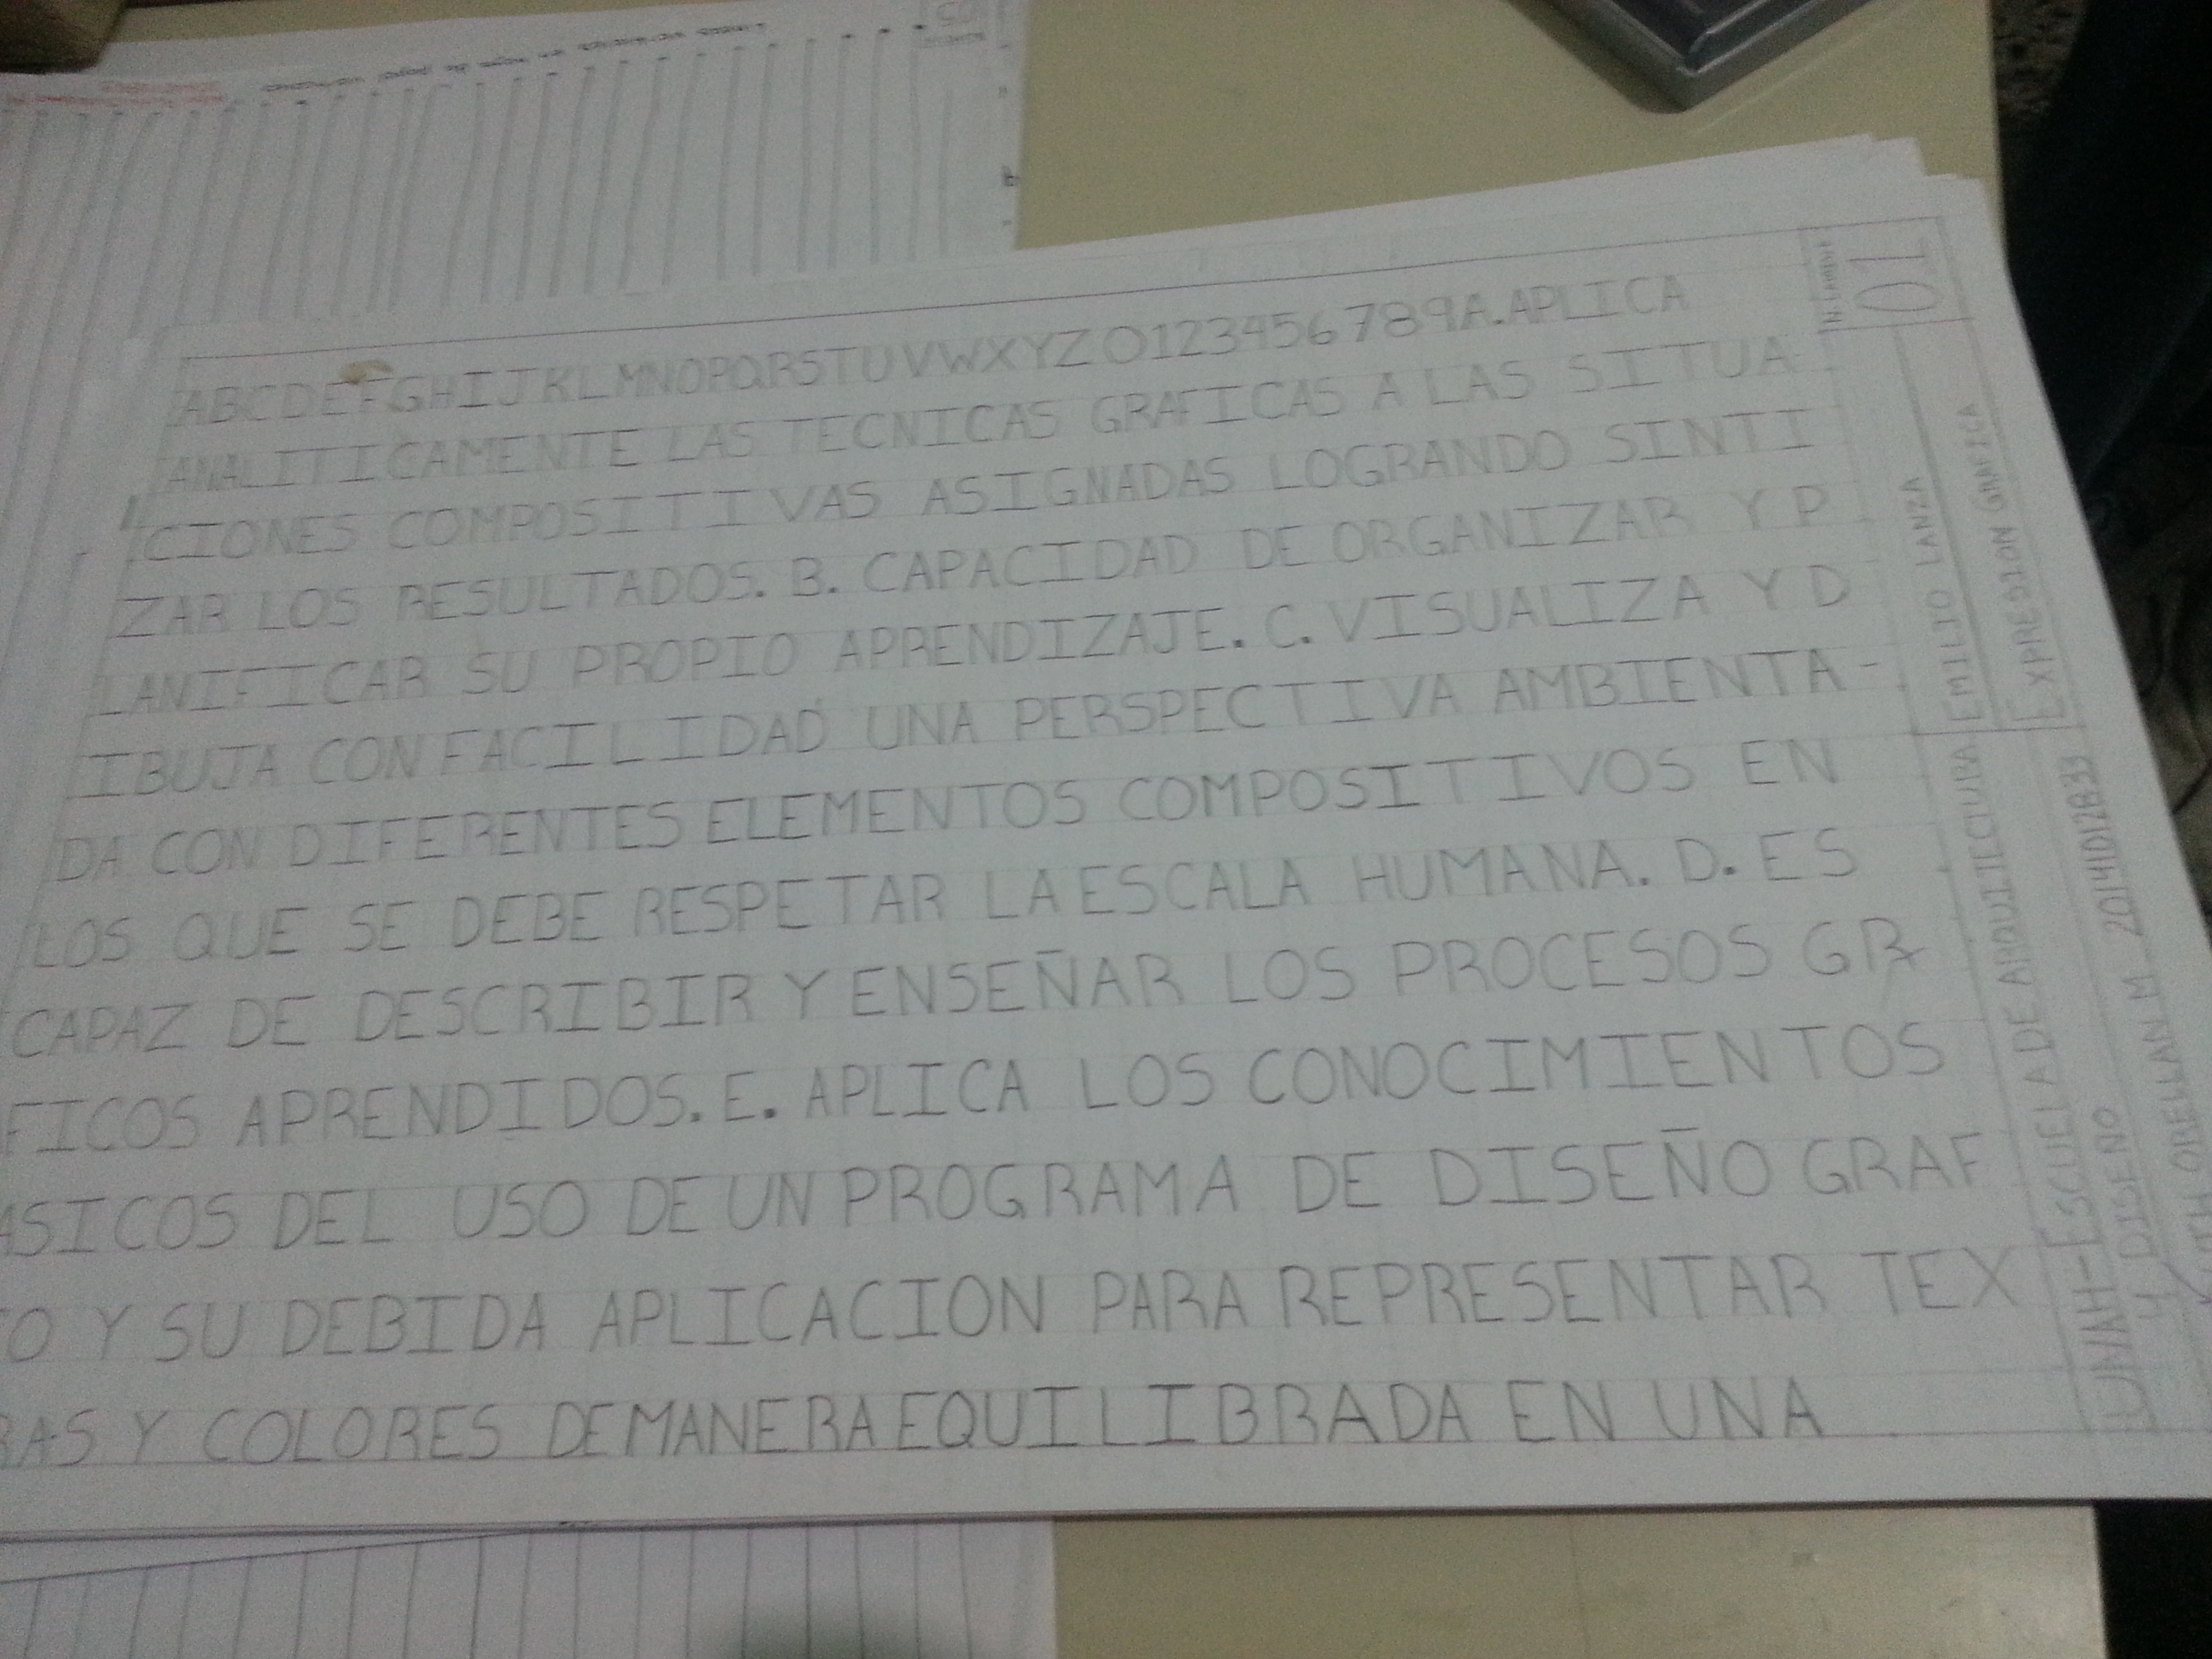 ABCDEFGHIJKLMNOPQRSTUVWXYZ0123456789A.APLICA
ANALITICAMENTE LAS TECNICAS GRAFICAS A LAS SITUA
CIONES COMPOSITIVAS ASIGNADAS LOGRANDO SINTI
ZAR LOS RESULTADOS. B. CAPACIDAD DE ORGANIZAR Y P
LANIFICAR SU PROPIO APRENDIZAJE. C. VISUALIZA Y D
IBUJA CON FACILIDAD UNA PERSPECTIVA AMBIENTA-
DA CON DIFERENTES ELEMENTOS COMPOSITIVOS EN
LOS QUE SE DEBE RESPETAR LA ESCALA HUMANA. D. ES
CAPAZ DE DESCRIBIR Y ENSEÑAR LOS PROCESOS GR
FICOS APRENDIDOS. E. APLICA LOS CONOCIMIENTOS
ASICOS DEL USO DE UN PROGRAMA DE DISEÑO GRAF
CO Y SU DEBIDA APLICACION PARA REPRESENTAR TEX
RAS Y COLORES DE MANERA EQUILIBRADA EN UNA
N.LAMINA
01
EMILIO LANZA
EXPRESION GRAFICA
UNAH-ESCUELA DE ARQUITECTURA
Y DISEÑO
ORELLAN.M 20141012833